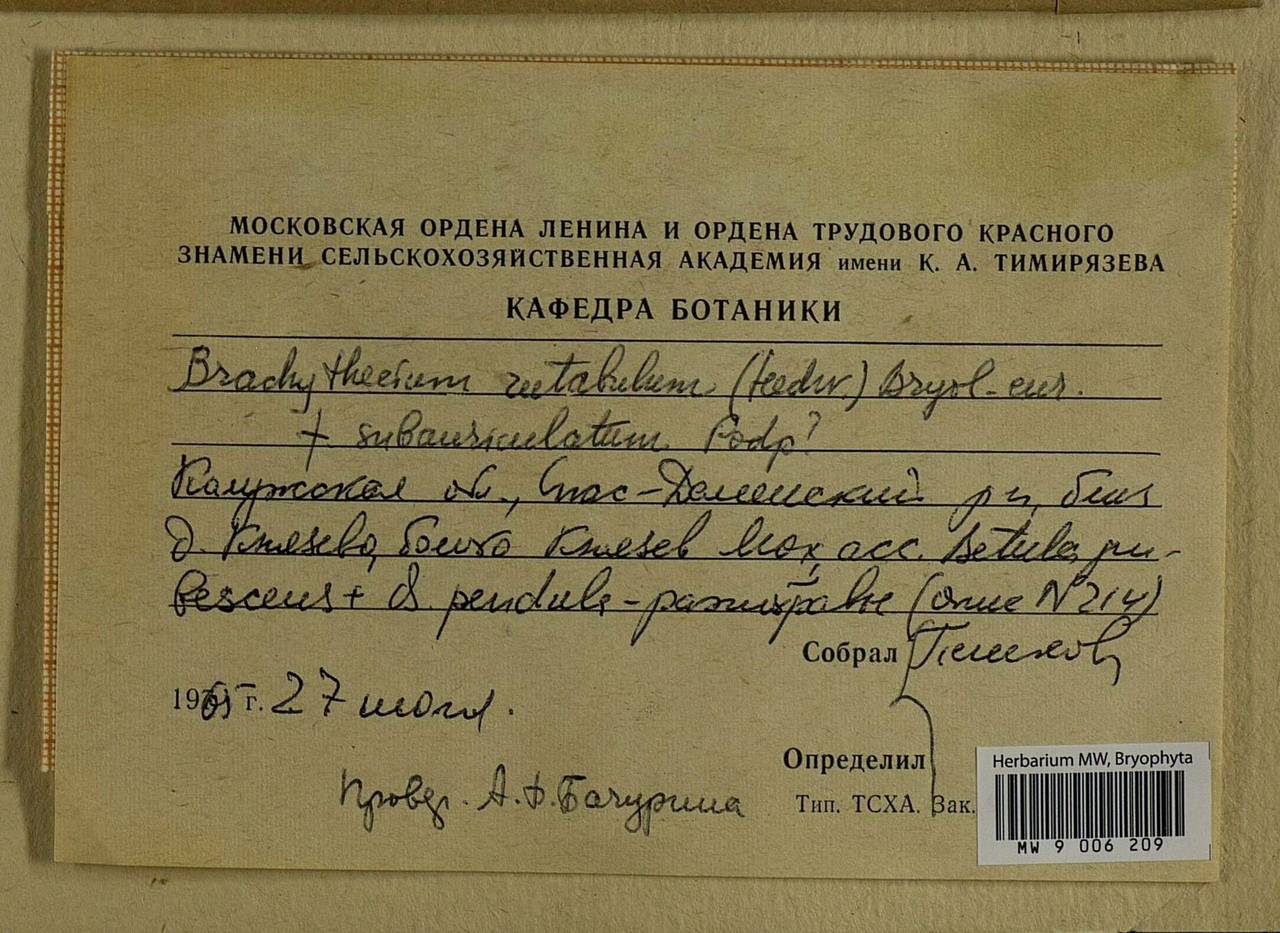 МОСКОВСКАЯ ОРДЕНА ЛЕНИНА И ОРДЕНА ТРУДОВОГО КРАСНОГО
ЗНАМЕНИ СЕЛЬСКОХОЗЯЙСТВЕННАЯ АКАДЕМИЯ имени К. А. ТИМИРЯЗЕВА
КАФЕДРА БОТАНИКИ
Brachythecium rutabulum (Hedw.) Bryol-eur.
f. subauriculatum Podp?
Калужская обл., Спас-Деменский р-н, близ
д. Князево, болото Князев Мох, асс. Betula pu-
bescens + B. pendula - разнотравье (опис N 214)
Собрал
1965 г. 27 июля.
Определил
Провер. А.Ф. Бачурина
Тип. ТСХА. Зак.
Herbarium MW, Bryophyta
MW 9 006 209